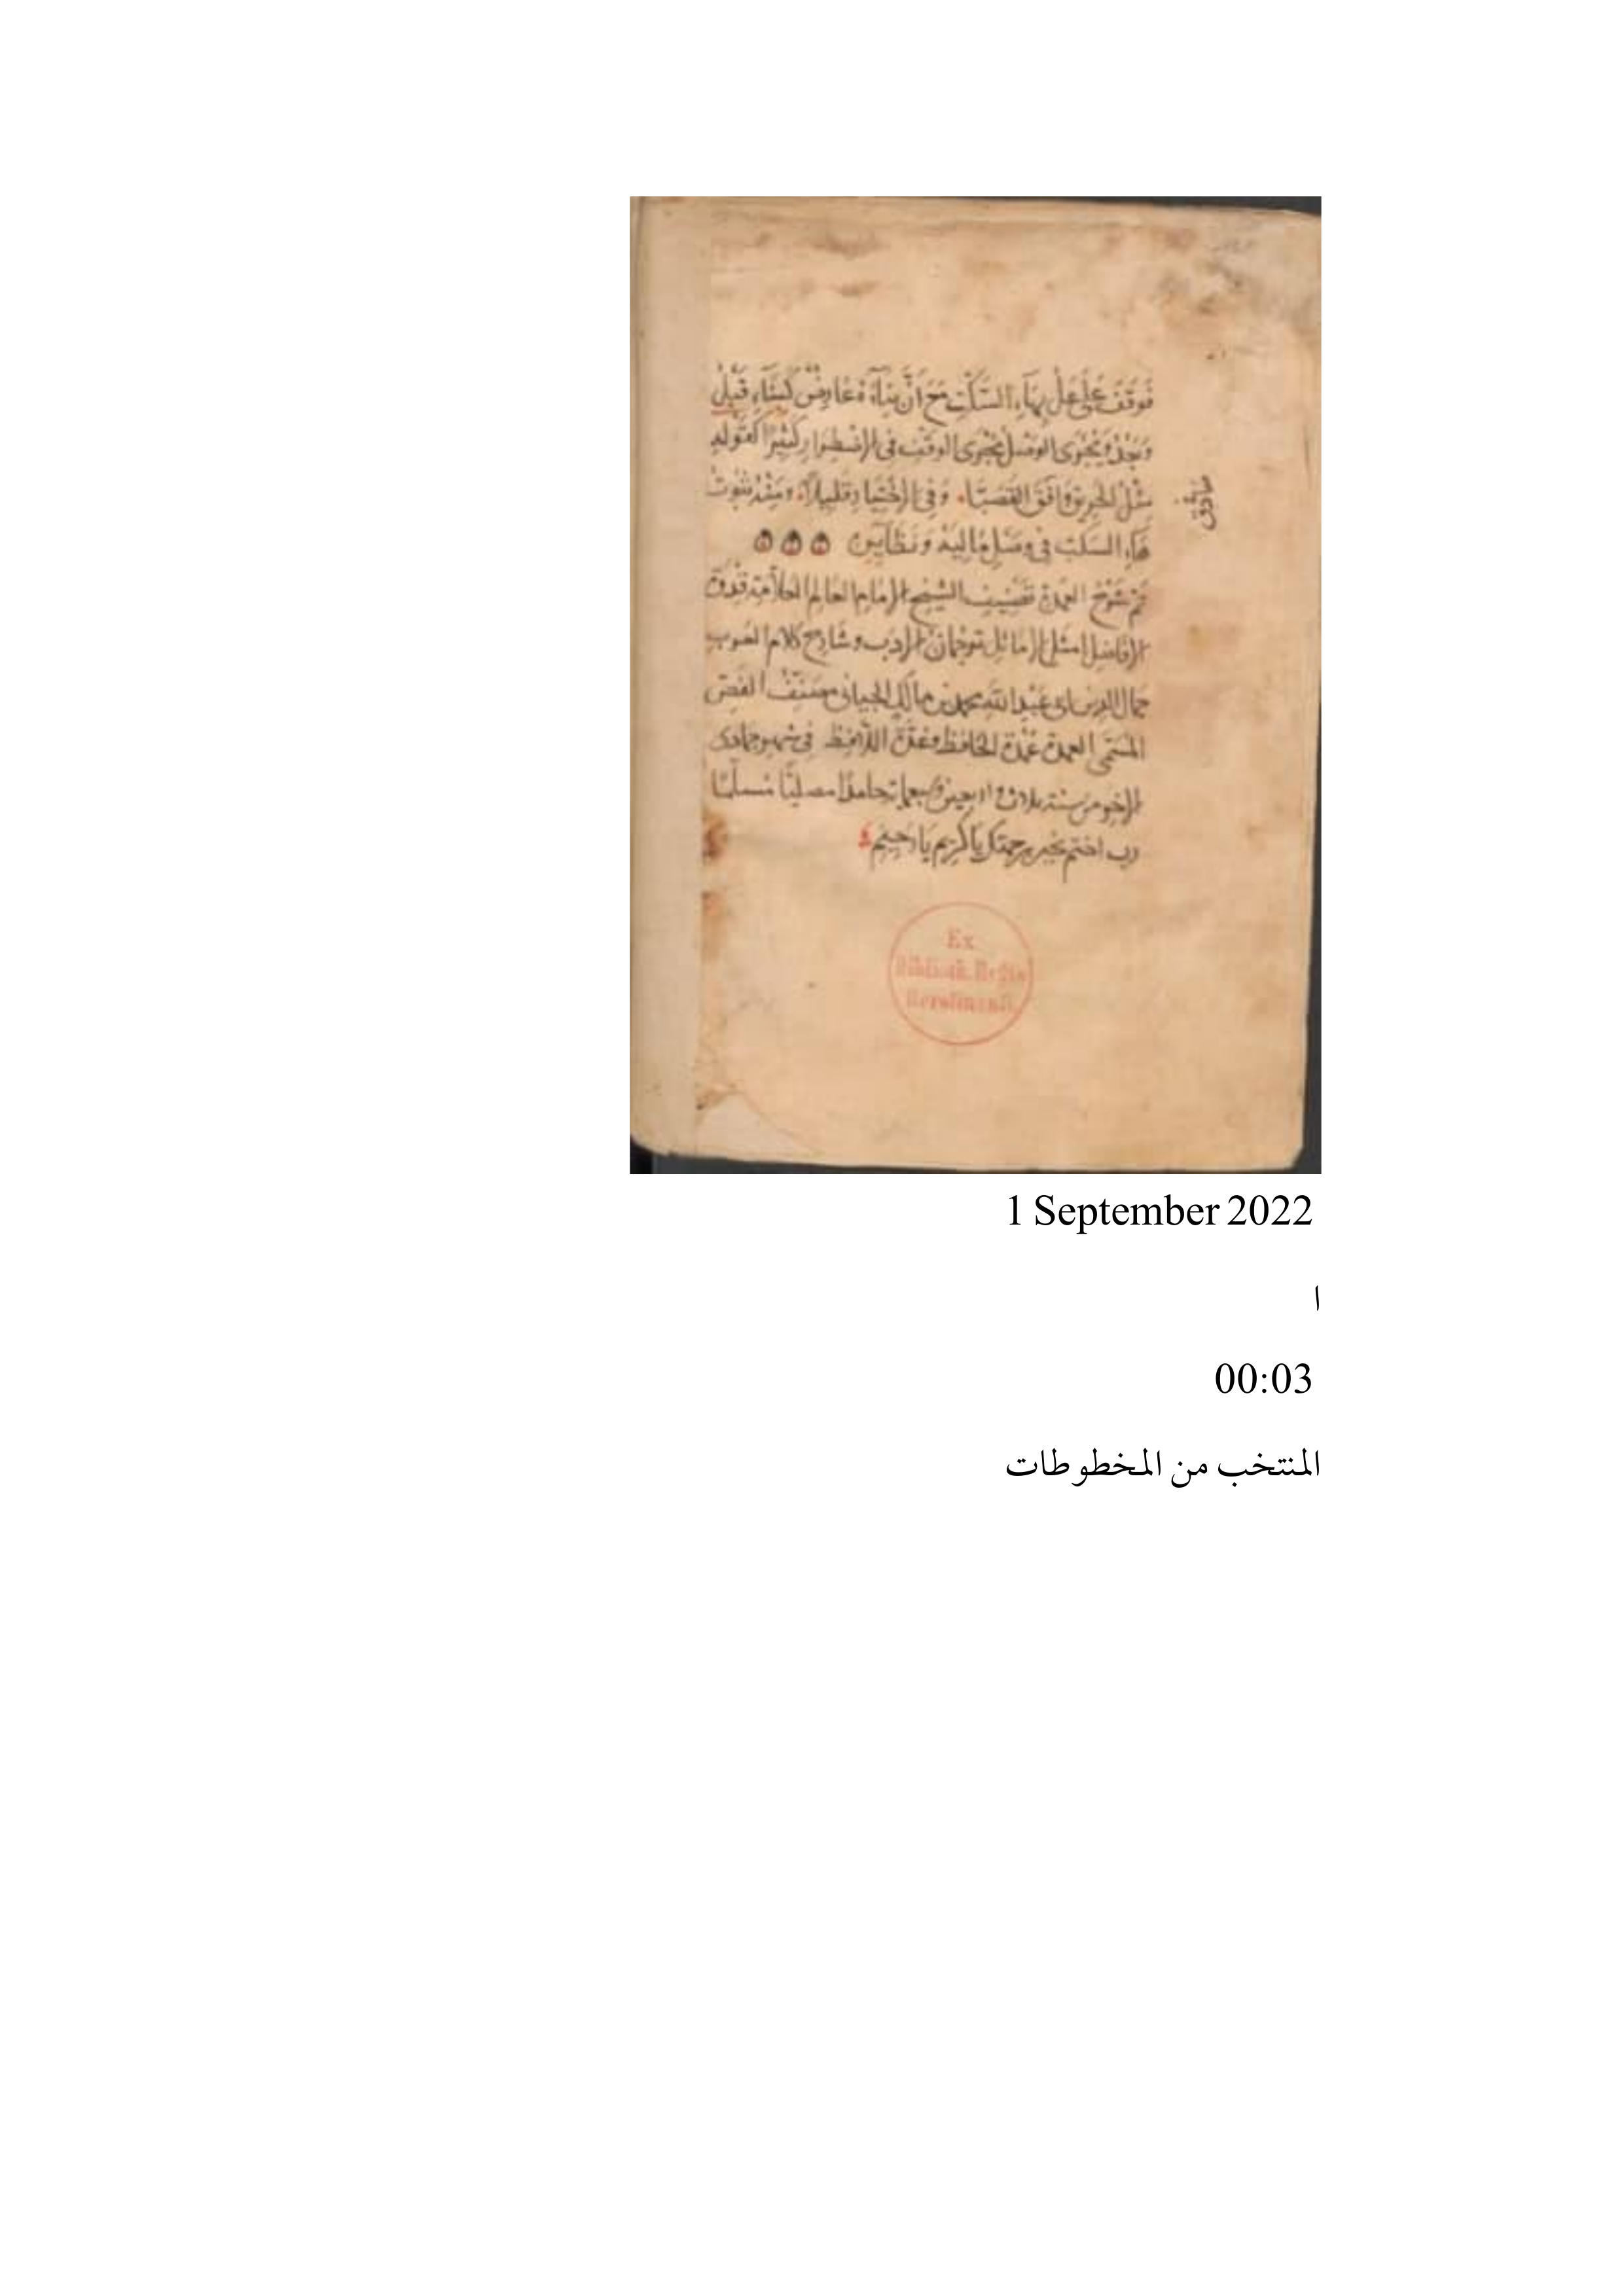 فَوَقَفَ عَلَى عَلُ بِهَاءِ السَّكْتِ مَعَ أَنَّ بِنَآءَهُ عَارِضٌ كَبِنَاءِ قَبْلُ
وَبَعْدُ وَيُجْرَى الوَصْلُ مُجْرَى الوَقْفِ فى الاضْطِرَارِ كَثِيْرًا كقوله
مِثْلُ الحَرِيقِ وَافَقَ القَصَبَّا، وَفِى الاخْتِيَارِ قَلِيلاً، وَمِنْهُ ثبُوتُ
هَاءِ السَكتِ فى وَصْلِ مَالِيَهْ وَنظَايِرِه
تم شرْحُ العمدة تَصْنِيف الشيخ الامَام العَالِم العَلاّمة قدوة
الافَاضِل امثل الامَاثِل ترجمَان الادَب وشَارِح كَلام العَرب
جمال الدين ابى عَبْد الله محمد بن مالك الجيانى مصَنّف النص
المُسَمّى العمدة عُمْدة الحَافظ وعُدّة اللّافِظ فى شهر جمادى
الاخر من سنة ثلاث واربعين وسبعماية حامدًا مصليًا مسلمًا
رب اختم بخير برحمتك يا كريم يَا رَحيم
Ex
Biblioth. Regia
Berolinensi.
1 September 2022
ا
00:03
المنتخب من المخطوطات